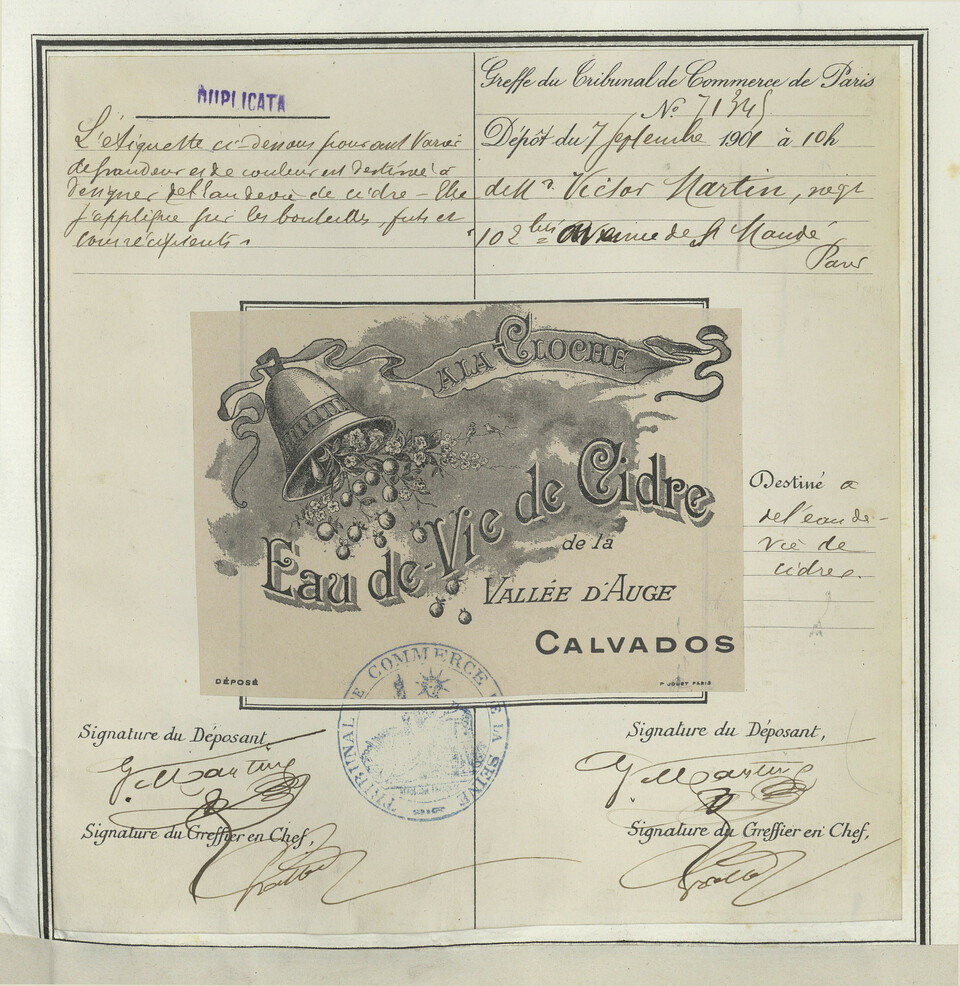 DUPLICATA
L'étiquette ci-dessous pouvant varier
de grandeur et de couleur est destinée à
désigner de l'eau de vie de cidre - Elle
s'applique sur les bouteilles, futs et
tous récipients.
Greffe du Tribunal de Commerce de Paris
No. 71345
Dépôt du 7 Septembre 1901 à 10h
de Mr. Victor Martin, négt
102 bis avenue de St Mandé
Paris
A LA CLOCHE
Eau de-Vie de Cidre
de la
VALLÉE D'AUGE
CALVADOS
DÉPOSÉ
P. JOUET PARIS
Destiné a
de l'eau de-
vie de
cidre.
TRIBUNAL DE COMMERCE DE LA SEINE
Signature du Déposant,
Signature du Déposant,
V. Martin
V. Martin
Signature du Greffier en Chef,
Signature du Greffier en Chef,